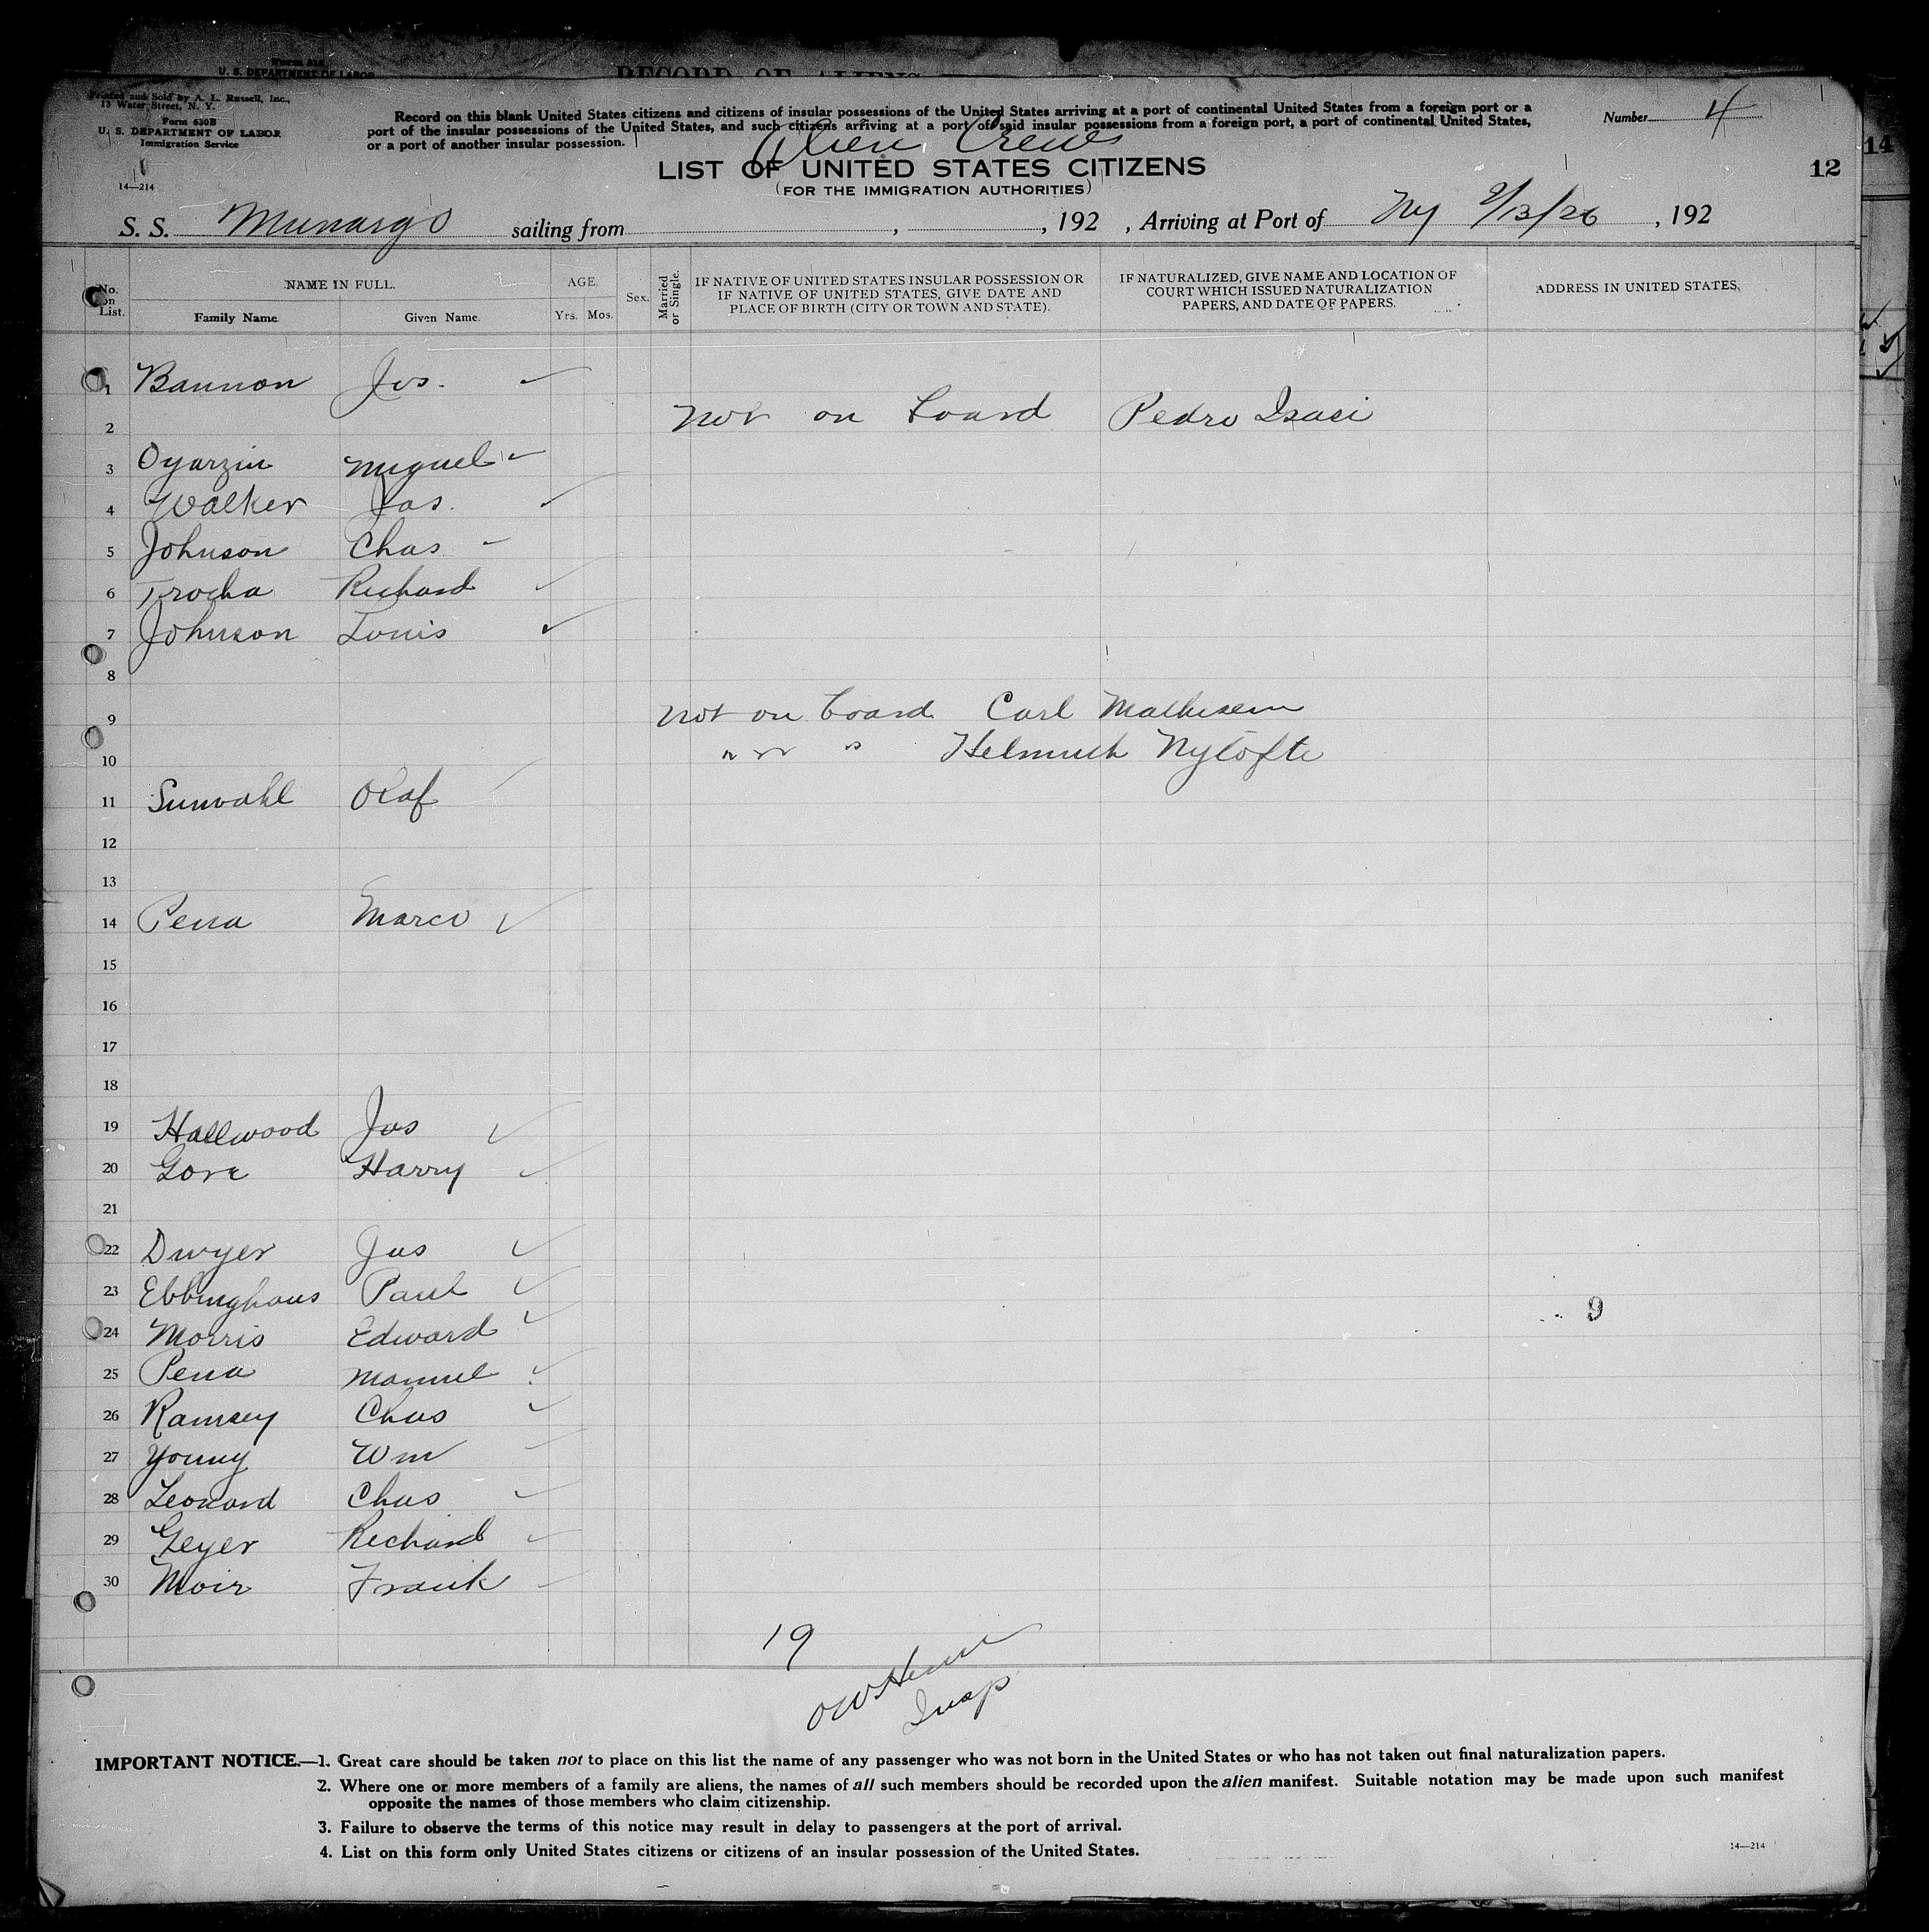 Form 630
U. S. DEPARTMENT OF LABOR
RECORD OF ALIENS
Printed and Sold by A. L. Russell, Inc.,
13 Water Street, N. Y.
Form 630B
U. S. DEPARTMENT OF LABOR
Immigration Service
14—214
Record on this blank United States citizens and citizens of insular possessions of the United States arriving at a port of continental United States from a foreign port or a
port of the insular possessions of the United States, and such citizens arriving at a port of said insular possessions from a foreign port, a port of continental United States,
or a port of another insular possession.
Number 4
Alien Crew
LIST OF UNITED STATES CITIZENS
(FOR THE IMMIGRATION AUTHORITIES)
12
14
S. S. Munargo sailing from , , 192 , Arriving at Port of Ny 9/13/26 , 192
No. on List.
NAME IN FULL.
Family Name
Given Name.
AGE.
Yrs. Mos.
Sex.
Married or Single.
IF NATIVE OF UNITED STATES INSULAR POSSESSION OR
IF NATIVE OF UNITED STATES, GIVE DATE AND
PLACE OF BIRTH (CITY OR TOWN AND STATE).
IF NATURALIZED, GIVE NAME AND LOCATION OF
COURT WHICH ISSUED NATURALIZATION
PAPERS, AND DATE OF PAPERS.
ADDRESS IN UNITED STATES.
1 Bannon Jos.
2 not on board Pedro Isaci
3 Oyarzin Miguel
4 Walker Jas.
5 Johnson Chas
6 Trocha Richard
7 Johnson Louis
8
9 not on board Carl Mathisen
10 " " " Helmuth Nylofte
11 Sunvahl Olaf
12
13
14 Pena Marco
15
16
17
18
19 Hallwood Jas
20 Gore Harry
21
22 Dwyer Jas
23 Ebbinghaus Paul
24 Morris Edward
25 Pena Manuel
26 Ramsey Chas
27 Young Wm
28 Leonard Chas
29 Geyer Richard
30 Moir Frank
9
19
Insp
IMPORTANT NOTICE.—1. Great care should be taken not to place on this list the name of any passenger who was not born in the United States or who has not taken out final naturalization papers.
2. Where one or more members of a family are aliens, the names of all such members should be recorded upon the alien manifest. Suitable notation may be made upon such manifest
opposite the names of those members who claim citizenship.
3. Failure to observe the terms of this notice may result in delay to passengers at the port of arrival.
4. List on this form only United States citizens or citizens of an insular possession of the United States.
14—214